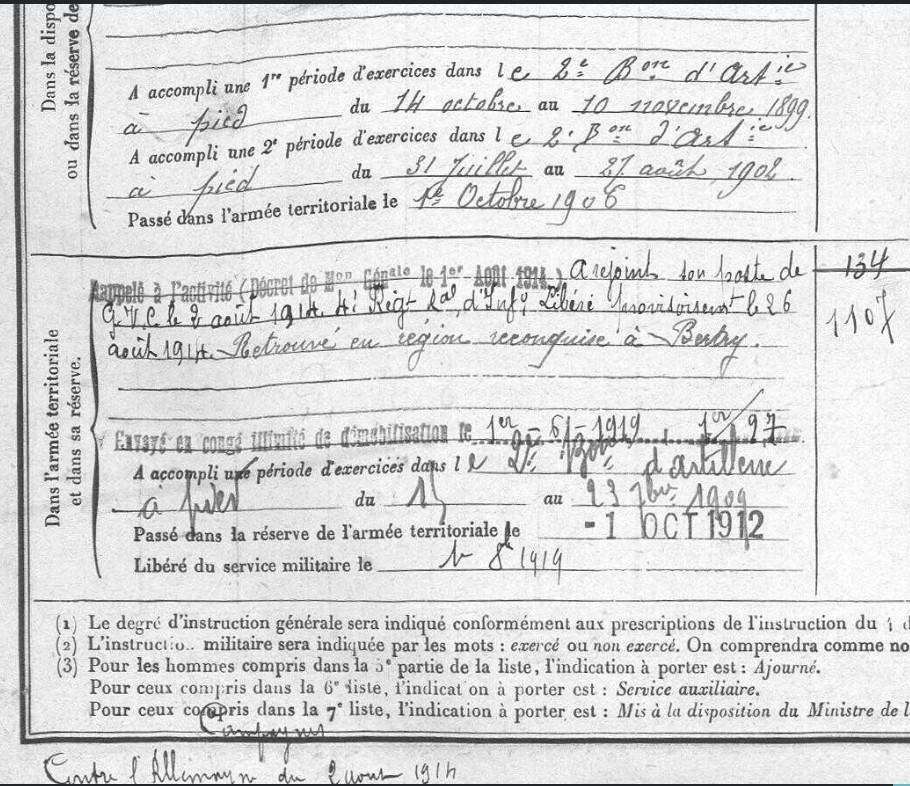 Dans la dispo
ou dans la réserve de
A accompli une 1re période d'exercices dans le 2e Bon d'Artie
à pied du 14 octobre au 10 novembre 1899.
A accompli une 2e période d'exercices dans le 2e Bon d'Artie
à pied du 31 Juillet au 27 août 1902.
Passé dans l'armée territoriale le 1er Octobre 1906
Dans l'armée territoriale
et dans sa réserve.
Rappelé à l'activité (Décret de Mon Génale le 1er Août 1914.) A rejoint son poste de
G.V.C. le 2 août 1914. 4e Régt d'Infie Libéré provisoiremt le 26
août 1914. Retrouvé en région reconquise à Bertry.
134
1107
Envoyé en congé illimité de démobilisation le 1er-6-1919 1er 97
A accompli une période d'exercices dans le 2e Bon d'artillerie
à pied du 15 au 23 7bre 1909
Passé dans la réserve de l'armée territoriale le -1 OCT 1912
Libéré du service militaire le 1919
(1) Le degré d'instruction générale sera indiqué conformément aux prescriptions de l'instruction du 4 d
(2) L'instructio.. militaire sera indiquée par les mots : exercé ou non exercé. On comprendra comme no
(3) Pour les hommes compris dans la 5e partie de la liste, l'indication à porter est : Ajourné.
Pour ceux compris dans la 6e liste, l'indicat on à porter est : Service auxiliaire.
Pour ceux compris dans la 7e liste, l'indication à porter est : Mis à la disposition du Ministre de l
Campagnes
Contre l'Allemagne du 2 aout 1914